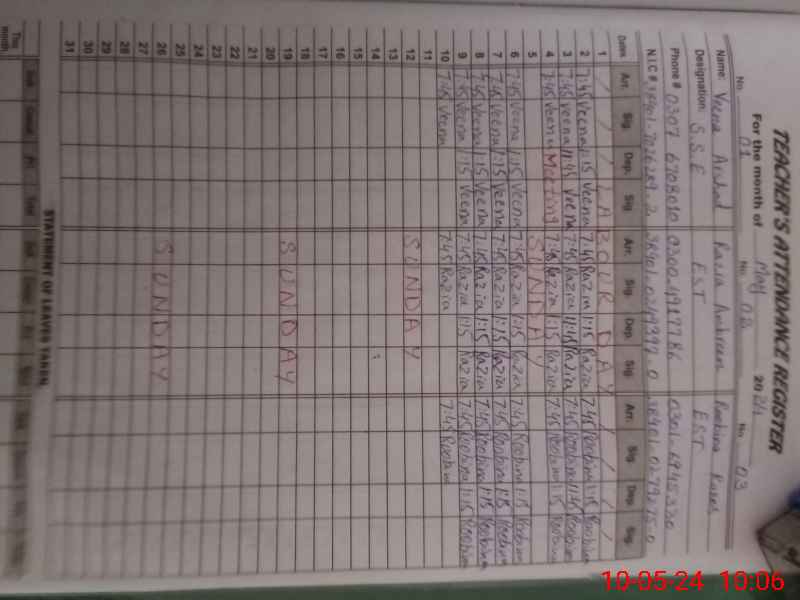 TEACHER'S ATTENDANCE REGISTER
For the month of May 2024
No. 01 No. 02 No. 03
Name: Veena Arshad Razia Ambreen Roobina
Designation. S.S.E EST EST
Phone # 0307 6708010
N.I.C #
Dates Arr. Sig. Dep. Sig. Arr. Sig. Dep. Sig. Arr. Sig. Dep. Sig.
1 / / / LABOUR DAY / / /
2 7:45 Veena 1:15 Veena 7:45 Razia 1:15 Razia 7:45 Roobina 1:15 Roobina
3 7:45 Veena 11:45 Veena 7:45 Razia 11:45 Razia 7:45 Roobina 11:45 Roobina
4 7:45 Veena Meeting 7:45 Razia 1:15 Razia 7:45 Roobina 1:15 Roobina
5 SUNDAY
6 7:45 Veena 1:15 Veena 7:45 Razia 1:15 Razia 7:45 Roobina 1:15 Roobina
7 7:45 Veena 1:15 Veena 7:45 Razia 1:15 Razia 7:45 Roobina 1:15 Roobina
8 7:45 Veena 1:15 Veena 7:45 Razia 1:15 Razia 7:45 Roobina 1:15 Roobina
9 7:45 Veena 1:15 Veena 7:45 Razia 1:15 Razia 7:45 Roobina 1:15 Roobina
10 7:45 Veena 7:45 Razia 7:45 Roobina
11
12 SUNDAY
13
14
15
16
17
18
19 SUNDAY
20
21
22
23
24
25
26 SUNDAY
27
28
29
30
31
STATEMENT OF LEAVES TAKEN
This month
10-05-24 10:06